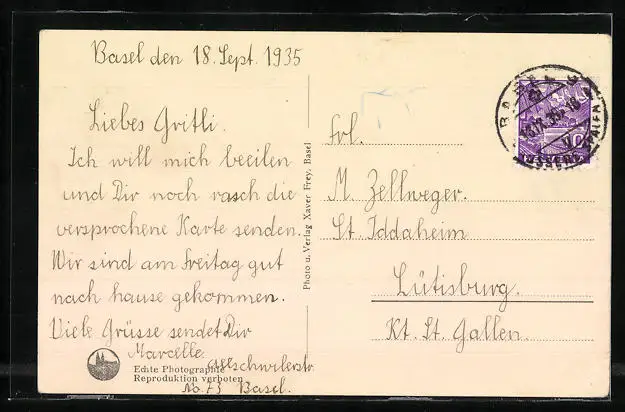 Basel den 18. Sept. 1935
Liebes Gritli.
Ich will mich beeilen
und Dir noch rasch die
versprochene Karte senden.
Wir sind am Freitag gut
nach hause gekommen.
Viele Grüsse sendet Dir
Marcelle.
Allschwilerstr.
No. 73 Basel.
Echte Photographie
Reproduktion verboten
Photo u. Verlag Xaver Frey, Basel
BASEL
Frl.
M. Zellweger.
St. Iddaheim
Lütisburg.
Kt. St. Gallen.